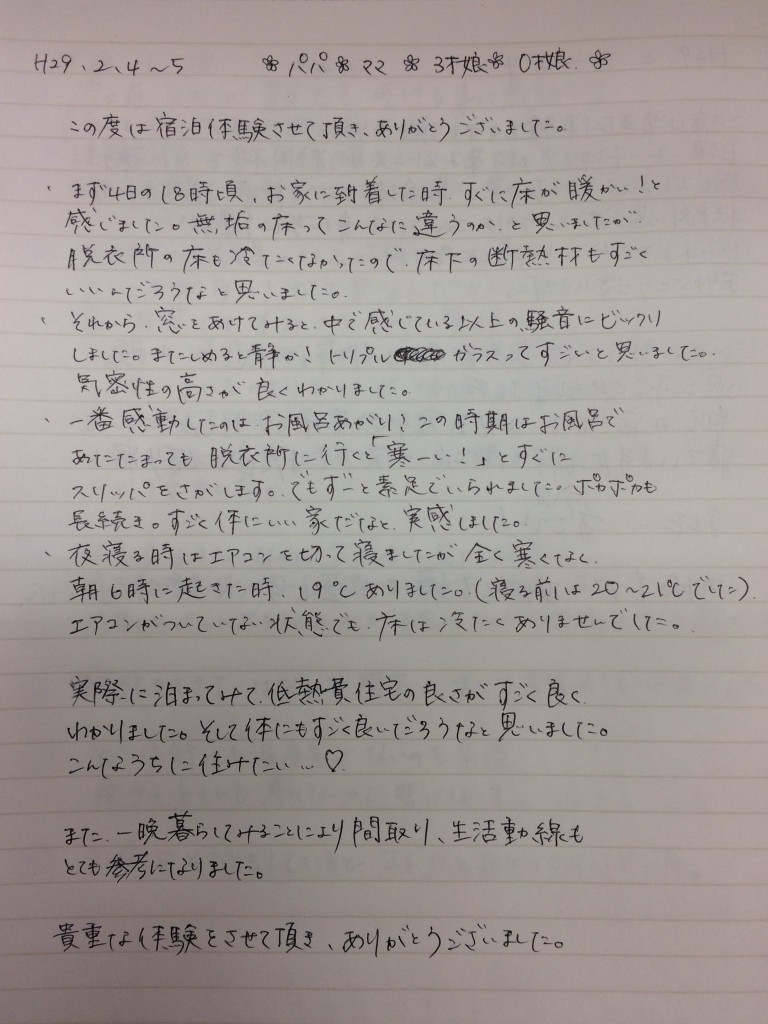 H29、2、4～5 ❀パパ❀ママ❀3才娘❀0才娘❀
この度は宿泊体験させて頂き、ありがとうございました。
・まず4日の18時頃、お家に到着した時、すぐに床が暖かい！と
感じました。無垢の床ってこんなに違うのか、と思いましたが、
脱衣所の床も冷たくなかったので、床下の断熱材もすごく
いいんだろうなと思いました。
・それから、窓をあけてみると、中で感じている以上の騒音にビックリ
しました。またしめると静か！トリプルガラスってすごいと思いました。
気密性の高さが良くわかりました。
・一番感動したのは、お風呂あがり！この時期はお風呂で
あたたまっても脱衣所に行くと「寒ーい！」とすぐに
スリッパをさがします。でもずーと素足でいられました。ポカポカも
長続き。すごく体にいい家だなと、実感しました。
・夜寝る時はエアコンを切って寝ましたが全く寒くなく、
朝6時に起きた時、19℃ありました。（寝る前は20～21℃でした）
エアコンがついていない状態でも、床は冷たくありませんでした。
実際に泊まってみて、低熱費住宅の良さがすごく良く
わかりました。そして体にもすごく良いだろうなと思いました。
こんなうちに住みたい…♡
また、一晩暮らしてみることにより間取り、生活動線も
とても参考になりました。
貴重な体験をさせて頂き、ありがとうございました。